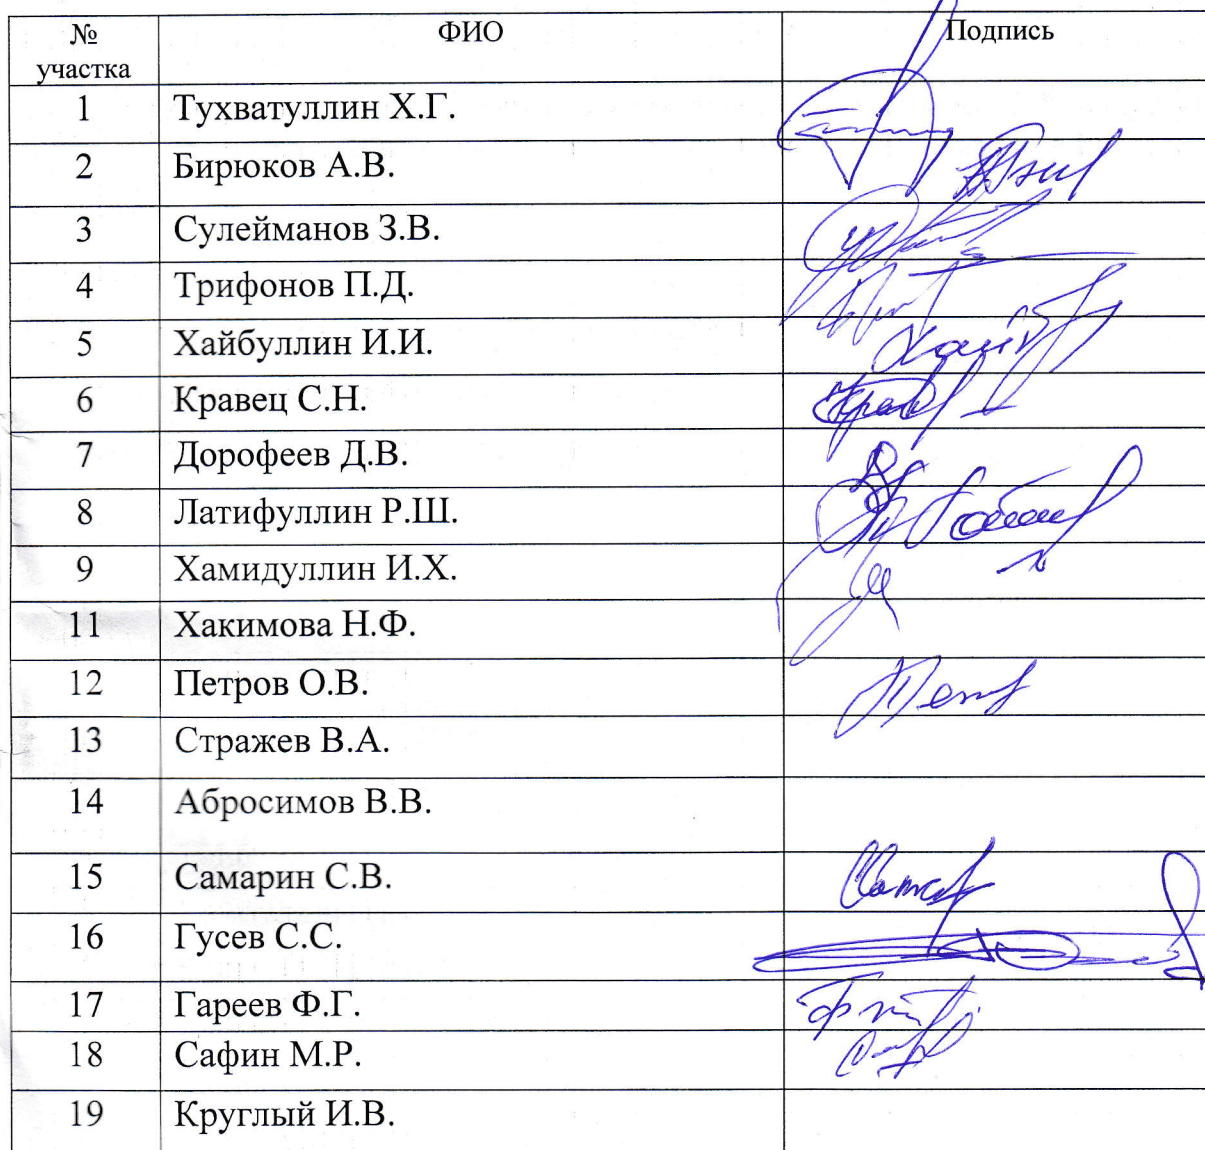 № участка ФИО Подпись
1 Тухватуллин Х.Г.
2 Бирюков А.В.
3 Сулейманов З.В.
4 Трифонов П.Д.
5 Хайбуллин И.И.
6 Кравец С.Н.
7 Дорофеев Д.В.
8 Латифуллин Р.Ш.
9 Хамидуллин И.Х.
11 Хакимова Н.Ф.
12 Петров О.В.
13 Стражев В.А.
14 Абросимов В.В.
15 Самарин С.В.
16 Гусев С.С.
17 Гареев Ф.Г.
18 Сафин М.Р.
19 Круглый И.В.